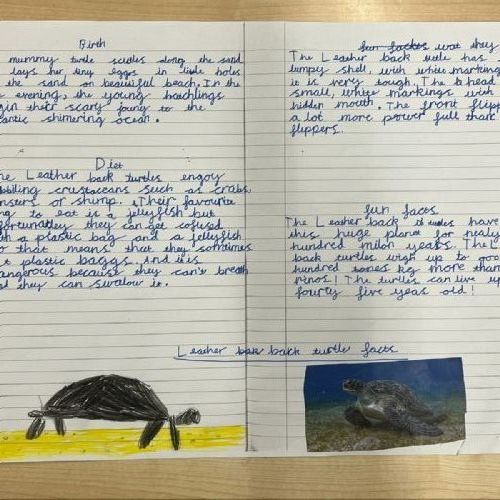 Birth
mummy turtle scuttles along the sand
lays her tiny eggs in little holes
the sand on beautiful beach. In the
evening, the young hatchlings
gin their scary journy to the
antic shimering ocean.
Diet
The Leather back turtles enjoy
bbling crustaceans such as crabs,
nsters or shrimp. Their favourite
ng to eat is a jellyfish but
fortunatley they can get cofused
th a plastic bag and a jellyfish
so that means that they sometimes
at plastic baggs. And it is
angerous because they can't breath
d they can swalow it.
fun factes wat they
The Leather back turtle has
lumpy shell, with white marking
it is very tough. The head
small, white markings with
hidden mouth. The front flipp
a lot more power full than
flippers.
fun facts
The Leather back turtles have
this huge planet for nealy
hundred milon years. The L
back turtles wigh up to
hundred tones kg more than
rinos! The turtles can live up
fourty five yeas old!
Leather bak back turtle facts